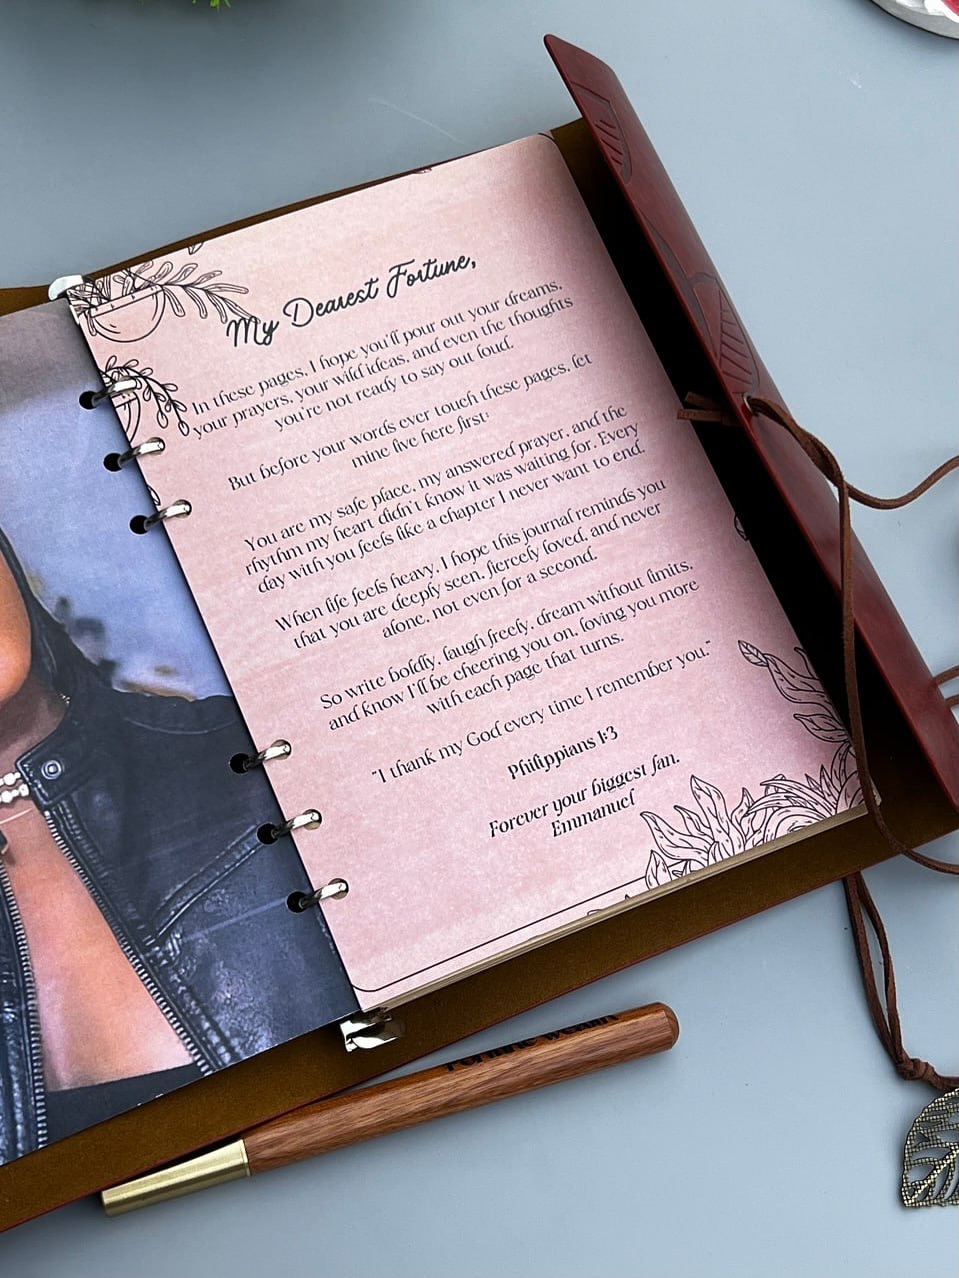 My Dearest Fortune,
In these pages, I hope you'll pour out your dreams,
your prayers, your wild ideas, and even the thoughts
you're not ready to say out loud.
But before your words ever touch these pages, let
mine live here first:
You are my safe place, my answered prayer, and the
rhythm my heart didn't know it was waiting for. Every
day with you feels like a chapter I never want to end.
When life feels heavy, I hope this journal reminds you
that you are deeply seen, fiercely loved, and never
alone, not even for a second.
So write boldly, laugh freely, dream without limits,
and know I'll be cheering you on, loving you more
with each page that turns.
"I thank my God every time I remember you."
Philippians 1:3
Forever your biggest fan,
Emmanuel